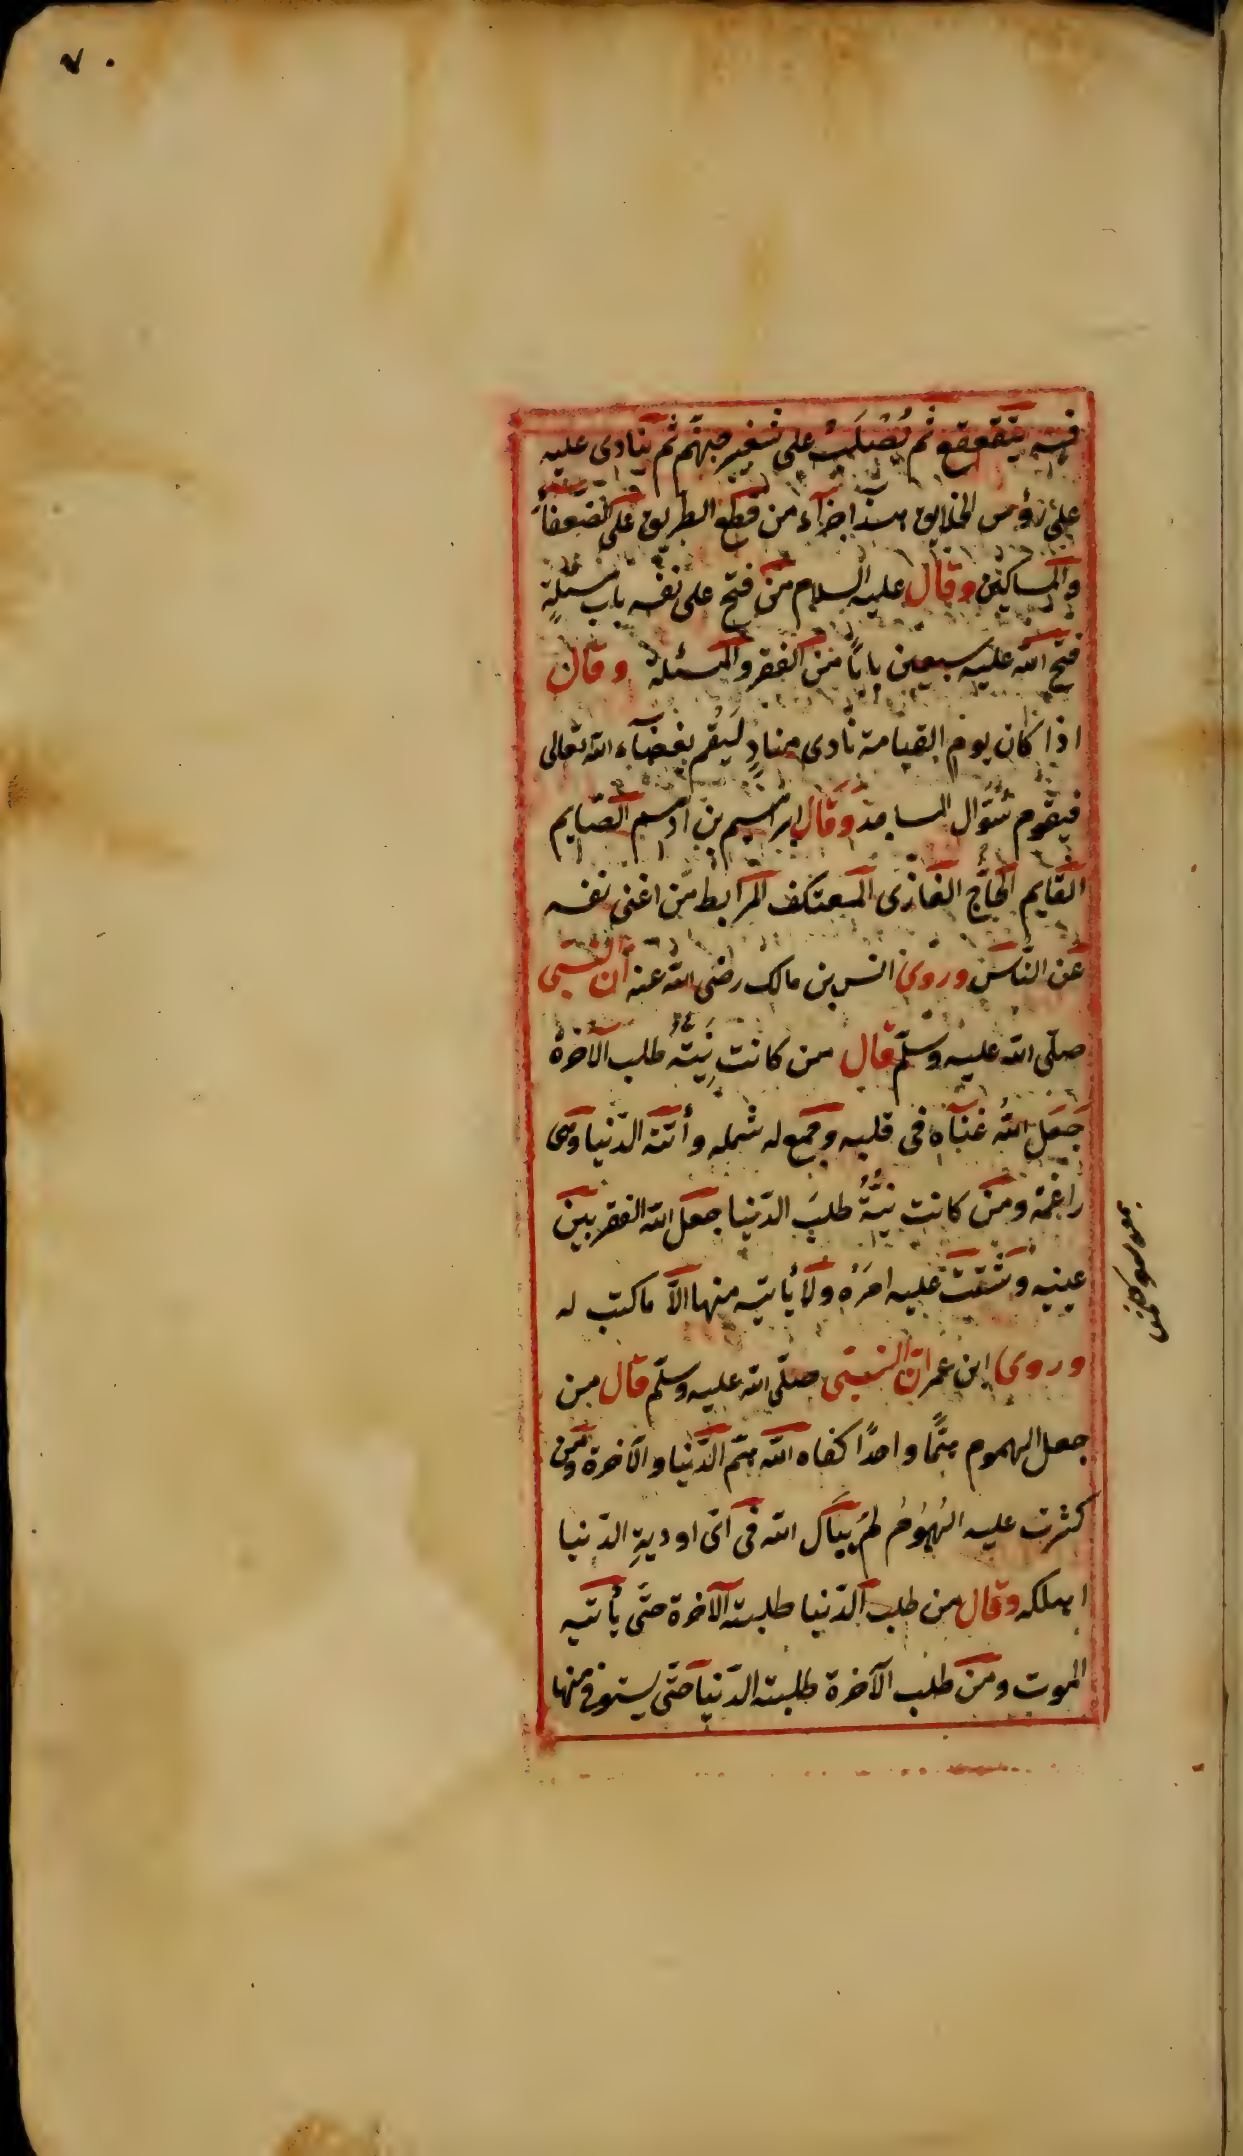 ٧٠
فيه يتقعقع ثم يُصلَبُ على شفير جهنّم ثم ينادى عليه
على رؤس الخلايق هذا جزآء من قطع الطريق على الضعفآء
والمساكين وقال عليه السلام من فتح على نفسه باب مسئلةٍ
فتح الله عليه سبعين بابًا من الفقر والمسئلة وقال
اذا كان يوم القيامة نادى منادٍ لَيَقُم بغضآء الله تعالى
فيقوم سُئوّال المساجد وقال ابراهيم بن ادهم الصّايم
القايم الحاجّ الغازى المعتكف المرابط من اغنى نفسه
عن الناس وروى انس بن مالك رضى الله عنه ان النبى
صلّى الله عليه وسلّم قال من كانت نِيَتُهُ طلب الآخرة
جَعَل اللهُ غنآه فى قلبه وجمع له شمله وأتته الدّنيا وهى
راغمة ومن كانت نيّتُهُ طلبَ الدّنيا جعل الله الفقر بين
عينيه وشتّت عليه امرَهُ ولا يأتيه منها الّا ما كتب له
وروى ابن عُمر انّ النّبىّ صلّى الله عليه وسلّم قال من
جعل الهموم همًّا واحدًا كفاه الله همّ الدّنيا والآخرة ومن
كثرت عليه الهُمُومُ لم يبآل الله فى اىّ اوديةِ الدّنيا
اهلكه وقال من طلب الدّنيا طلبته الآخرة حتّى يأتيه
الموت ومن طلب الآخرة طلبته الدّنيا حتّى يستوفى منها